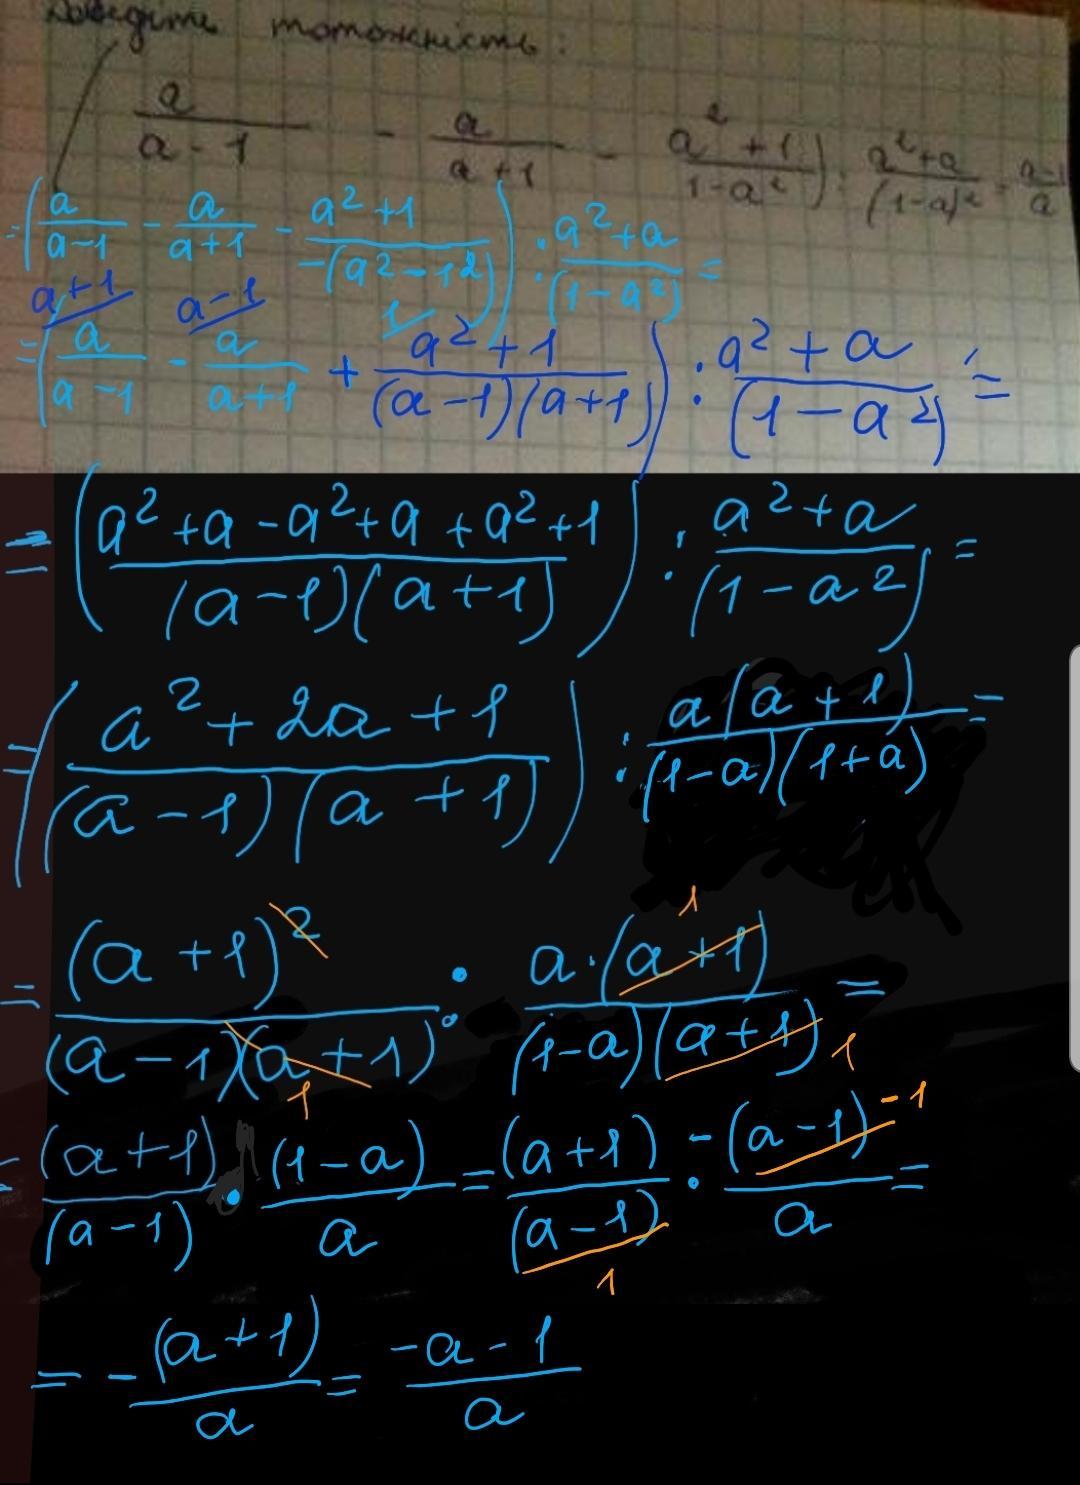 Доведіть тотожність:
( a/(a-1) - a/(a+1) - (a²+1)/(1-a²) ) : (a²+a)/(1-a)² = (a-1)/a
= ( a/(a-1) - a/(a+1) - (a²+1)/(-(a²-1²)) ) : (a²+a)/(1-a²) =
a+1 a-1 1
= ( a/(a-1) - a/(a+1) + (a²+1)/((a-1)(a+1)) ) : (a²+a)/(1-a²) =
= ( (a²+a-a²+a+a²+1)/((a-1)(a+1)) ) : (a²+a)/(1-a²) =
= ( (a²+2a+1)/((a-1)(a+1)) ) : (a(a+1))/((1-a)(1+a)) =
1
= (a+1)²/((a-1)(a+1)) : (a·(a+1))/((1-a)(a+1)) =
1 1
= (a+1)/(a-1) · (1-a)/a = (a+1)/(a-1) · -(a-1)/a =
-1
1
= -(a+1)/a = (-a-1)/a